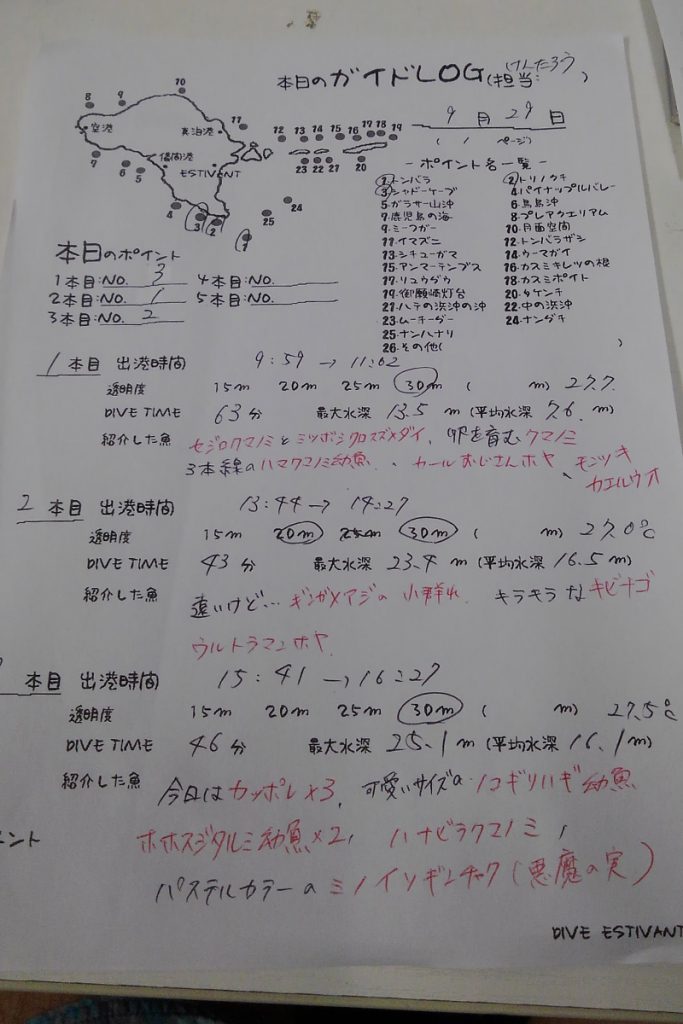 本日のガイドLOG(担当: けんたろう )
9 月 29 日
( / ページ)
空港
真泊港
儀間港
ESTIVANT
8 9 10 11 12 13 14 15 16 17 18 19
7 6 5 23 22 21 20
4 3 2 1 25 24
- ポイント名一覧 -
1トンバラ 2トリノクチ
3シャドーケーブ 4パイナップルバレー
5ガラサー山沖 6鳥島沖
7鹿児島の海 8プレアクエリアム
9ミーフガー 10月面空間
11イマズニ 12トンバラザシ
13シチューガマ 14ウーマガイ
15アンマーテンプス 16カスミキレツの根
17リュウグウ 18カスミポイト
19御願崎灯台 20タケンチ
21ハテの浜沖の沖 22中の浜沖
23ムーチーグー 24ナングチ
25ナンハナリ
26その他( )
本日のポイント
1本目:NO. 3 4本目:NO.
2本目:NO. 1 5本目:NO.
3本目:NO. 2
1 本目 出港時間 9:59 → 11:02
透明度 15m 20m 25m 30m ( m) 27.7
DIVE TIME 63 分 最大水深 13.5 m (平均水深 7.6 m)
紹介した魚 セジロクマノミとミツボシクロスズメダイ、卵を育むクマノミ
3本線のハマクマノミ幼魚、カールおじさんホヤ、モンツキ
カエルウオ
2 本目 出港時間 13:44 → 14:27
透明度 15m 20m 25m 30m ( m) 27.0℃
DIVE TIME 43 分 最大水深 23.4 m (平均水深 16.5 m)
紹介した魚 遠いけど… ギンガメアジの小群れ キラキラなキビナゴ
ウルトラマンホヤ
本目 出港時間 15:41 → 16:27
透明度 15m 20m 25m 30m ( m) 27.5℃
DIVE TIME 46 分 最大水深 25.1 m (平均水深 16.1 m)
紹介した魚 今日はカッポレ×3、可愛いサイズのノコギリハギ幼魚
ホホスジタルミ幼魚×2、ハナビラクマノミ、
メント
パステルカラーのミノイソギンチャク(悪魔の実)
DIVE ESTIVANT